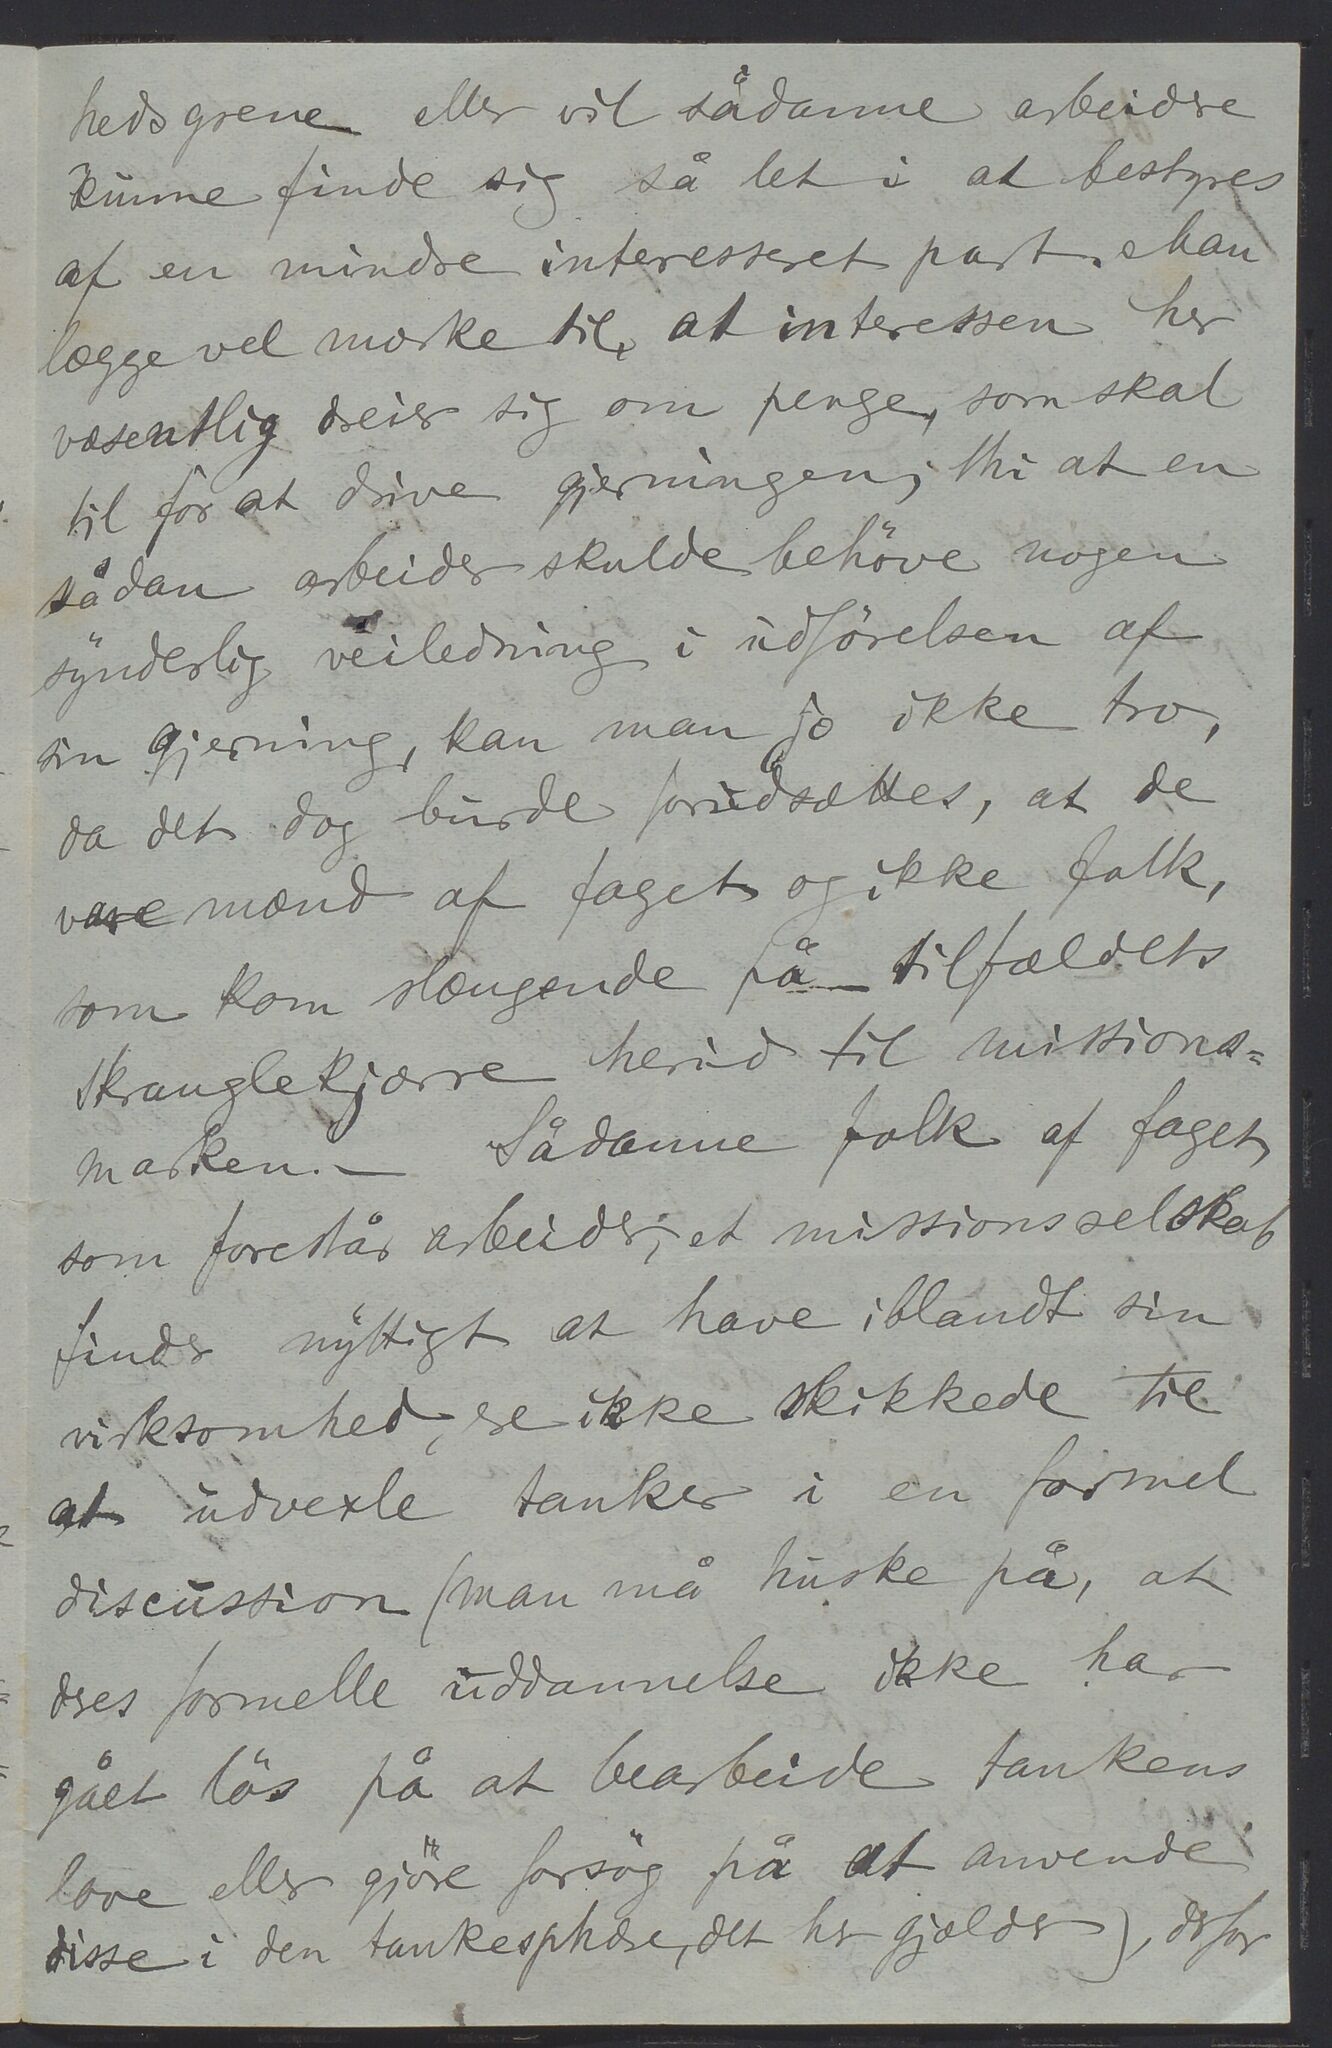 hedsgrene eller vil sådanne arbeidere
kunne finde sig så let i at bestyres
af en mindre interesseret part. Man
lægge vel mærke til, at interessen her
væsentlig dreier sig om penge, som skal
til for at drive gjerningen; thi at en
sådan arbeider skulde behöve nogen
synderlig veiledning i udförelsen af
sin gjerning, kan man jo ikke tro,
da det dog burde forudsættes, at de
vare mænd af faget og ikke folk,
som kom slængende på tilfældets
skranglekjærre herud til missions=
marken. — Sådanne folk af faget,
som forestår arbeider, et missionsselskab
finder nyttigt at have iblandt sin
virksomhed, ere ikke skikkede til
at udvexle tanker i en formel
discussion (man må huske på, at
deres formelle uddannelse ikke har
gået lös på at bearbeide tankens
love eller gjöre forsög på at anvende
disse i den tankesphære, det her gjælder), derfor